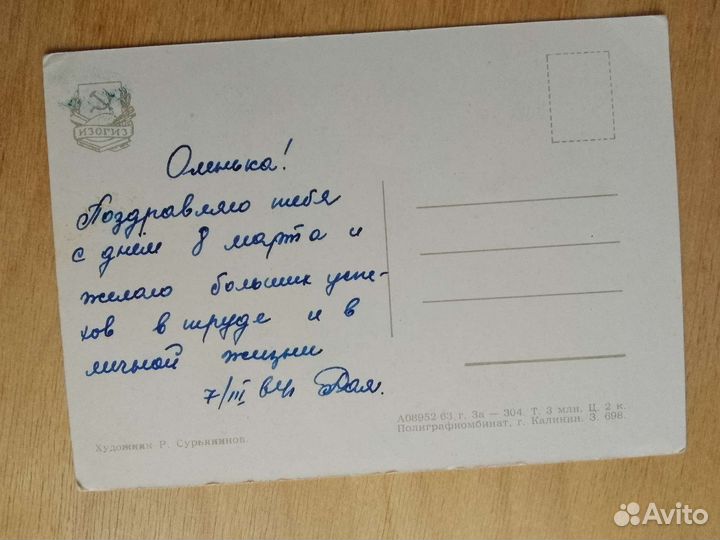 ИЗОГИЗ
Оленька!
Поздравляю тебя
с днём 8 марта и
желаю больших успе-
хов в труде и в
личной жизни
7/III 64 Рая.
Художник Р. Сурьянинов.
А08952 63 г. За — 304. Т. 3 млн. Ц. 2 к.
Полиграфкомбинат, г. Калинин. З. 698.
Avito